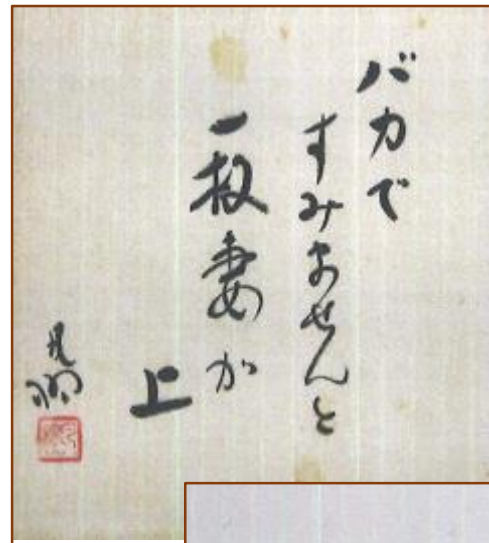 バカで
すみませんと
一枚妻が
上